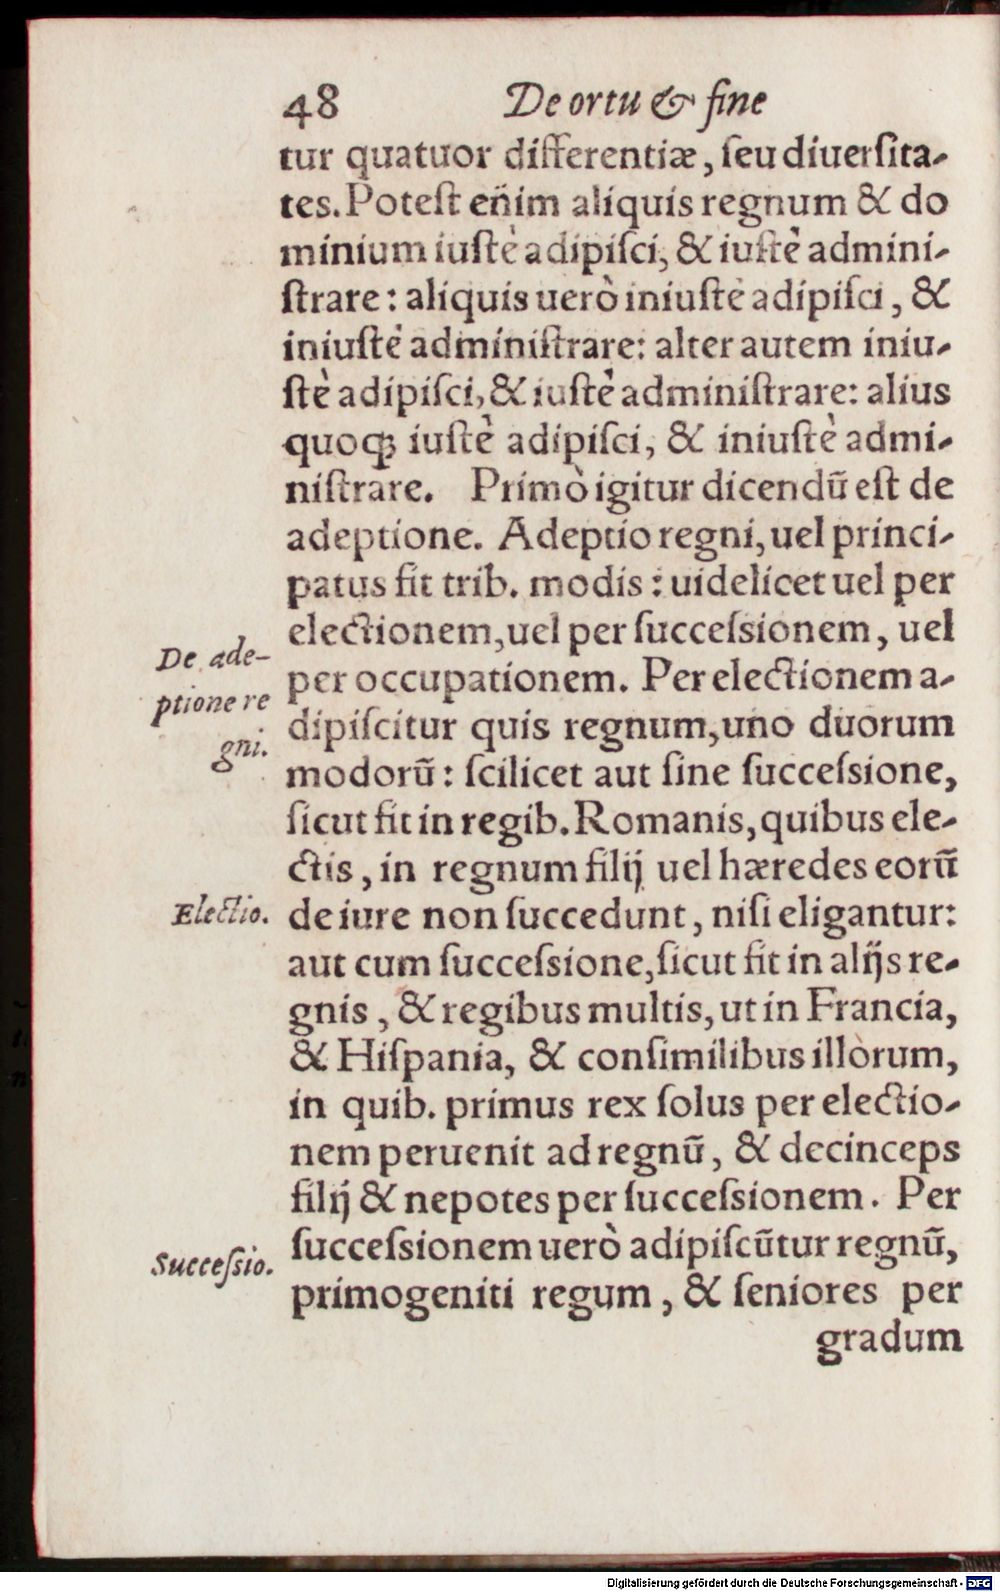 48 De ortu & fine
tur quatuor differentiæ, ſeu diuerſita-
tes. Poteſt enim aliquis regnum & do
minium iuſtè adipiſci, & iuſtè admini-
ſtrare: aliquis uerò iniuſtè adipiſci, &
iniuſtè adminiſtrare: alter autem iniu-
ſtè adipiſci, & iuſtè adminiſtrare: alius
quoqꝫ iuſtè adipiſci, & iniuſtè admi-
niſtrare. Primò igitur dicendũ eſt de
adeptione. Adeptio regni, uel princi-
patus fit trib. modis: uidelicet uel per
electionem, uel per ſucceſsionem, uel
De ade-
ptione re
gni.
per occupationem. Per electionem a-
dipiſcitur quis regnum, uno duorum
modorũ: ſcilicet aut ſine ſucceſsione,
ſicut fit in regib. Romanis, quibus ele-
ctis, in regnum filij uel hæredes eorũ
Electio.
de iure non ſuccedunt, niſi eligantur:
aut cum ſucceſsione, ſicut fit in alijs re-
gnis, & regibus multis, ut in Francia,
& Hiſpania, & conſimilibus illorum,
in quib. primus rex ſolus per electio-
nem peruenit ad regnũ, & decinceps
filij & nepotes per ſucceſsionem. Per
Succeſsio.
ſucceſsionem uerò adipiſcũtur regnũ,
primogeniti regum, & ſeniores per
gradum
Digitalisierung gefördert durch die Deutsche Forschungsgemeinschaft - DFG